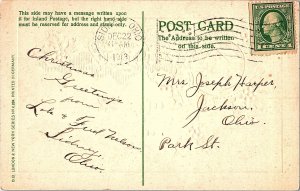 This side may have a message written upon
it for Inland Postage, but the right hand side
must be reserved for address and stamp only.
POST CARD
The Address to be written
on this side.
DEC 22
Christmas
Greetings
from
Lola & Fred Nelson
Sidney
Ohio.
Mrs Joseph Harper,
Jackson,
Ohio
Park St.
1 CENT 1